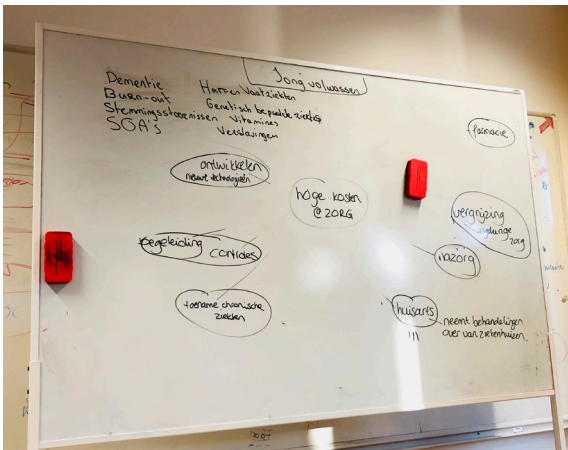 Jong volwassen
Dementie
Burn-out
Stemmingsstoornissen
SOA's
Harten Vaatziekten
Genetisch bepaalde ziektes
Vitamines
Verslavingen
farmacie
ontwikkelen
nieuwe technologieën
hoge kosten
@ ZORG
vergrijzing
langdurige
zorg
begeleiding controles
nazorg
toename chronische
ziekten
huisarts
!!!
neemt behandelingen
over van ziekenhuizen.